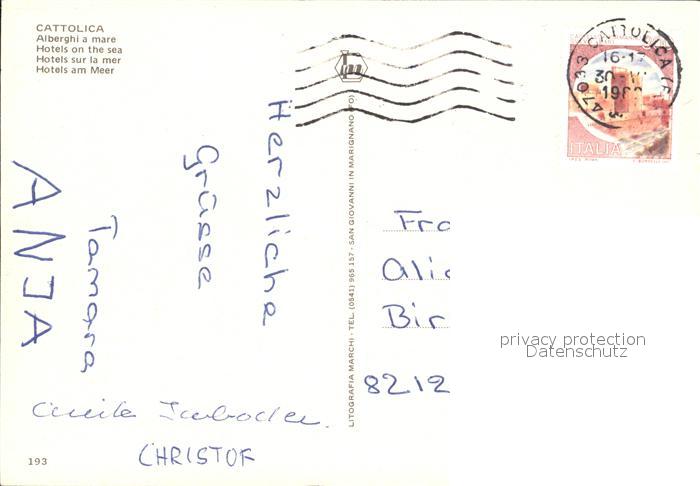 CATTOLICA
Alberghi a mare
Hotels on the sea
Hotels sur la mer
Hotels am Meer
47033 CATTOLICA (F
16-17
30
ITALIA
Herzliche
Grüsse
Tamara
ANJA
CHRISTOF
193
LITOGRAFIA MARCHI - TEL. (0541) 965 157 - SAN GIOVANNI IN MARIGNANO (FO)
Fra
Alic
Bir
8212
privacy protection
Datenschutz